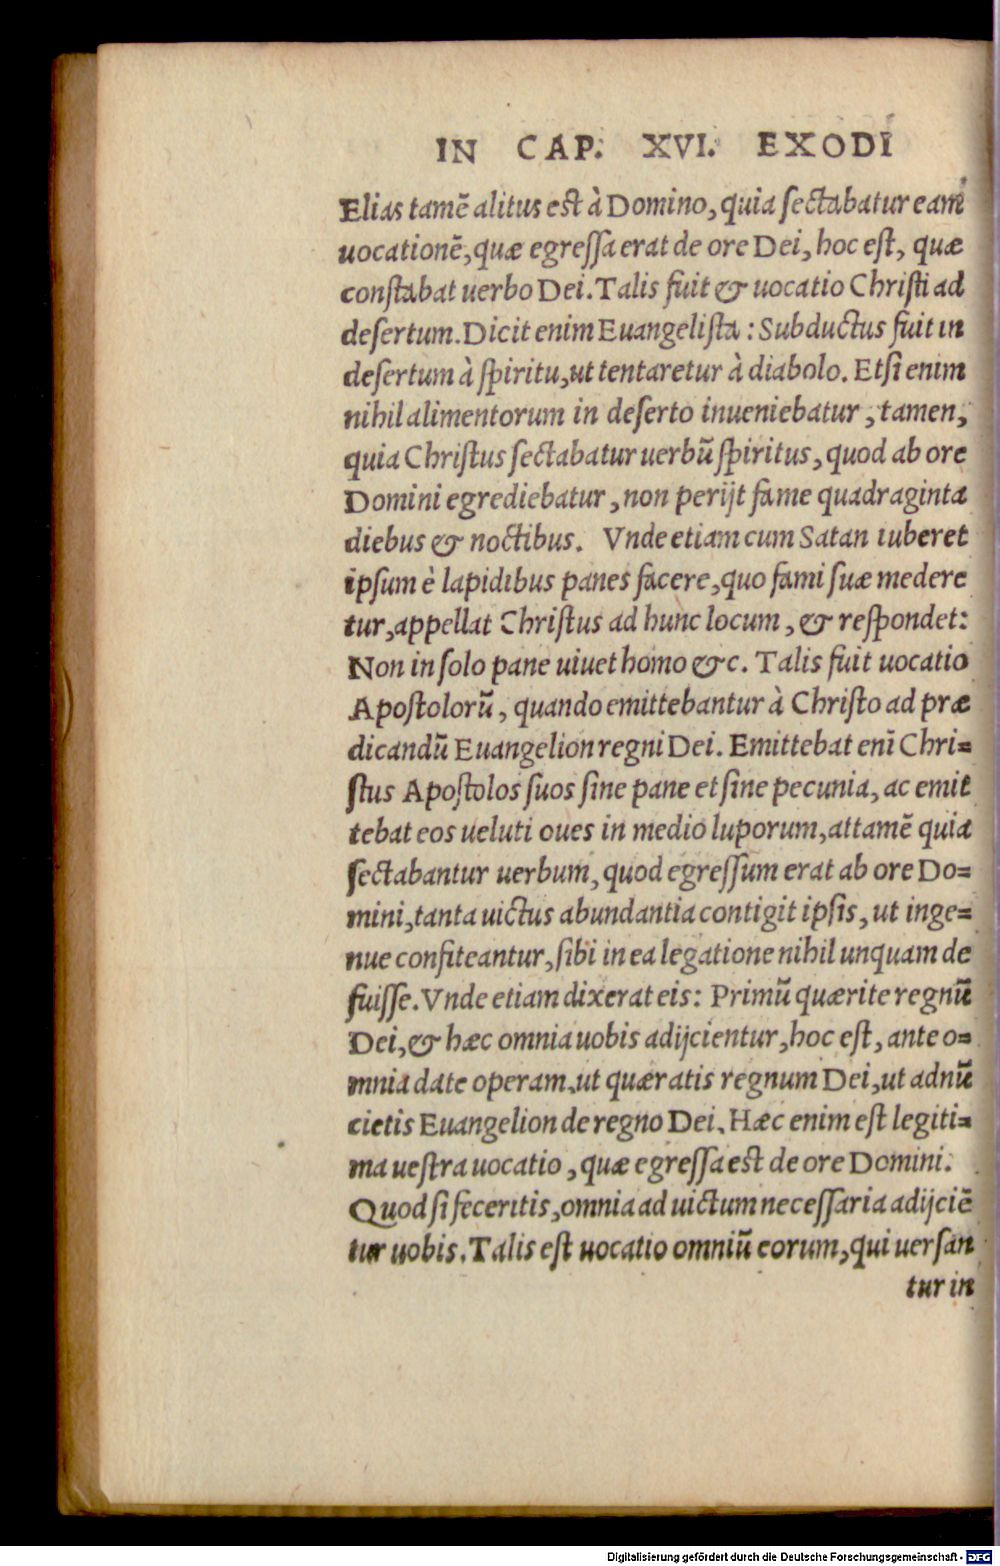 IN CAP. XVI. EXODI
Elias tamē alitus est à Domino, quia sectabatur eam
uocationē, quæ egressa erat de ore Dei, hoc est, quæ
constabat uerbo Dei. Talis fuit & uocatio Christi ad
desertum. Dicit enim Euangelista: Subductus fuit in
desertum à spiritu, ut tentaretur à diabolo. Etsi enim
nihil alimentorum in deserto inueniebatur, tamen,
quia Christus sectabatur uerbū spiritus, quod ab ore
Domini egrediebatur, non perijt fame quadraginta
diebus & noctibus. Vnde etiam cum Satan iuberet
ipsum è lapidibus panes facere, quo fami suæ medere
tur, appellat Christus ad hunc locum, & respondet:
Non in solo pane uiuet homo &c. Talis fuit uocatio
Apostolorū, quando emittebantur à Christo ad præ
dicandū Euangelion regni Dei. Emittebat enī Chri=
stus Apostolos suos sine pane et sine pecunia, ac emit
tebat eos ueluti oues in medio luporum, attamē quia
sectabantur uerbum, quod egressum erat ab ore Do=
mini, tanta uictus abundantia contigit ipsis, ut inge=
nue confiteantur, sibi in ea legatione nihil unquam de
fuisse. Vnde etiam dixerat eis: Primū quærite regnū
Dei, & hæc omnia uobis adijcientur, hoc est, ante o=
mnia date operam, ut quæratis regnum Dei, ut adnū
cietis Euangelion de regno Dei. Hæc enim est legiti=
ma uestra uocatio, quæ egressa est de ore Domini.
Quod si feceritis, omnia ad uictum necessaria adijciē
tur uobis. Talis est uocatio omniū eorum, qui uersan
tur in
Digitalisierung gefördert durch die Deutsche Forschungsgemeinschaft - DFG